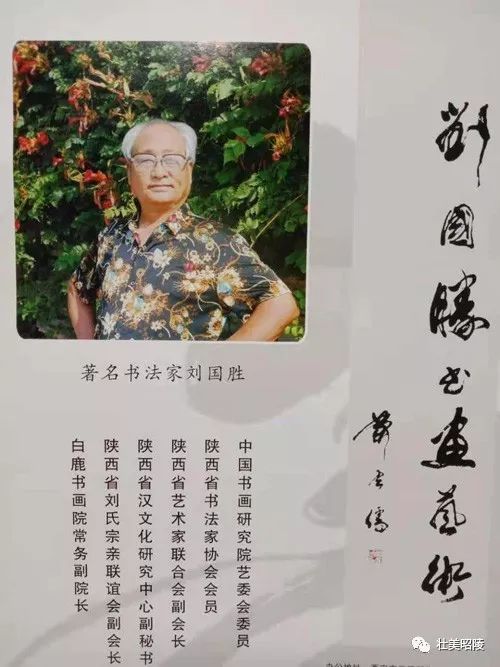 劉國勝书畫藝術
著名书法家刘国胜
中国书画研究院艺委会委员
陕西省书法家协会会员
陕西省艺术家联合会副会长
陕西省汉文化研究中心副秘书
陕西省刘氏宗亲联谊会副会长
白鹿书画院常务副院长
壮美昭陵